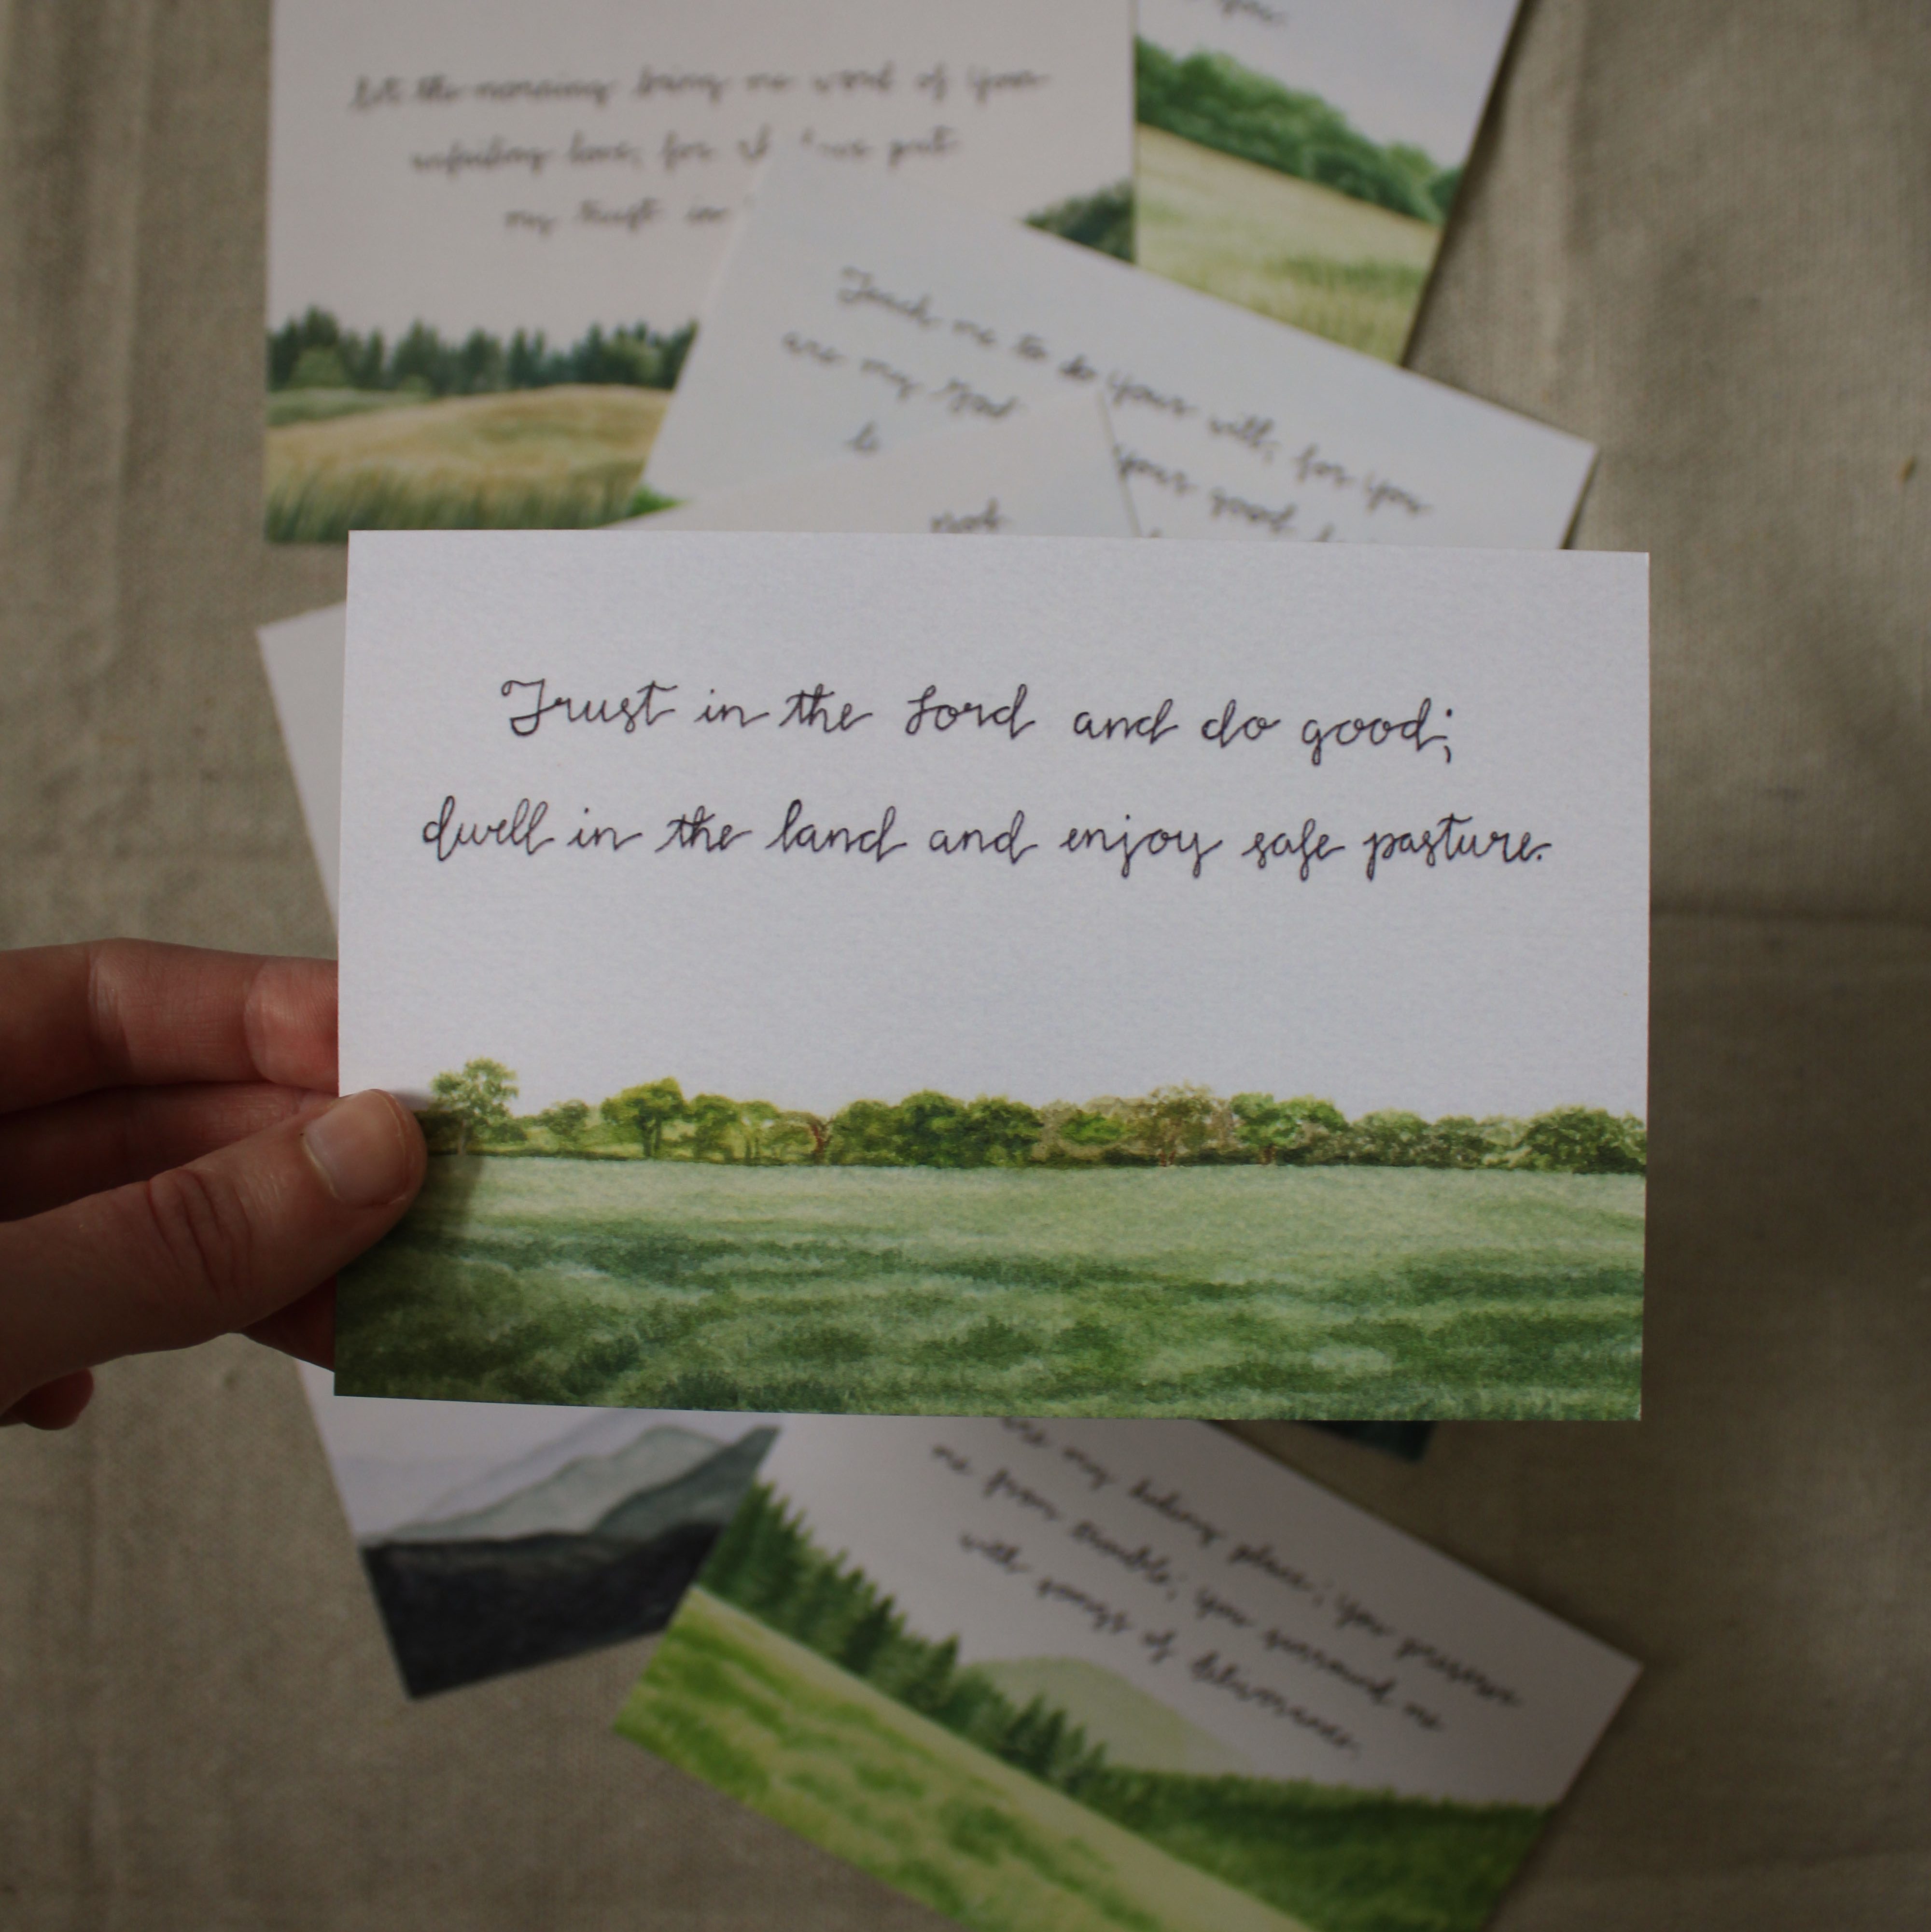 you.
let the morning bring me word of your
unfailing love, for I have put
my trust in
Teach me to do your will, for you
are my God
your good
not
Trust in the Lord and do good;
dwell in the land and enjoy safe pasture.
are my hiding place; you preserve
me from trouble; you surround me
with songs of deliverance.